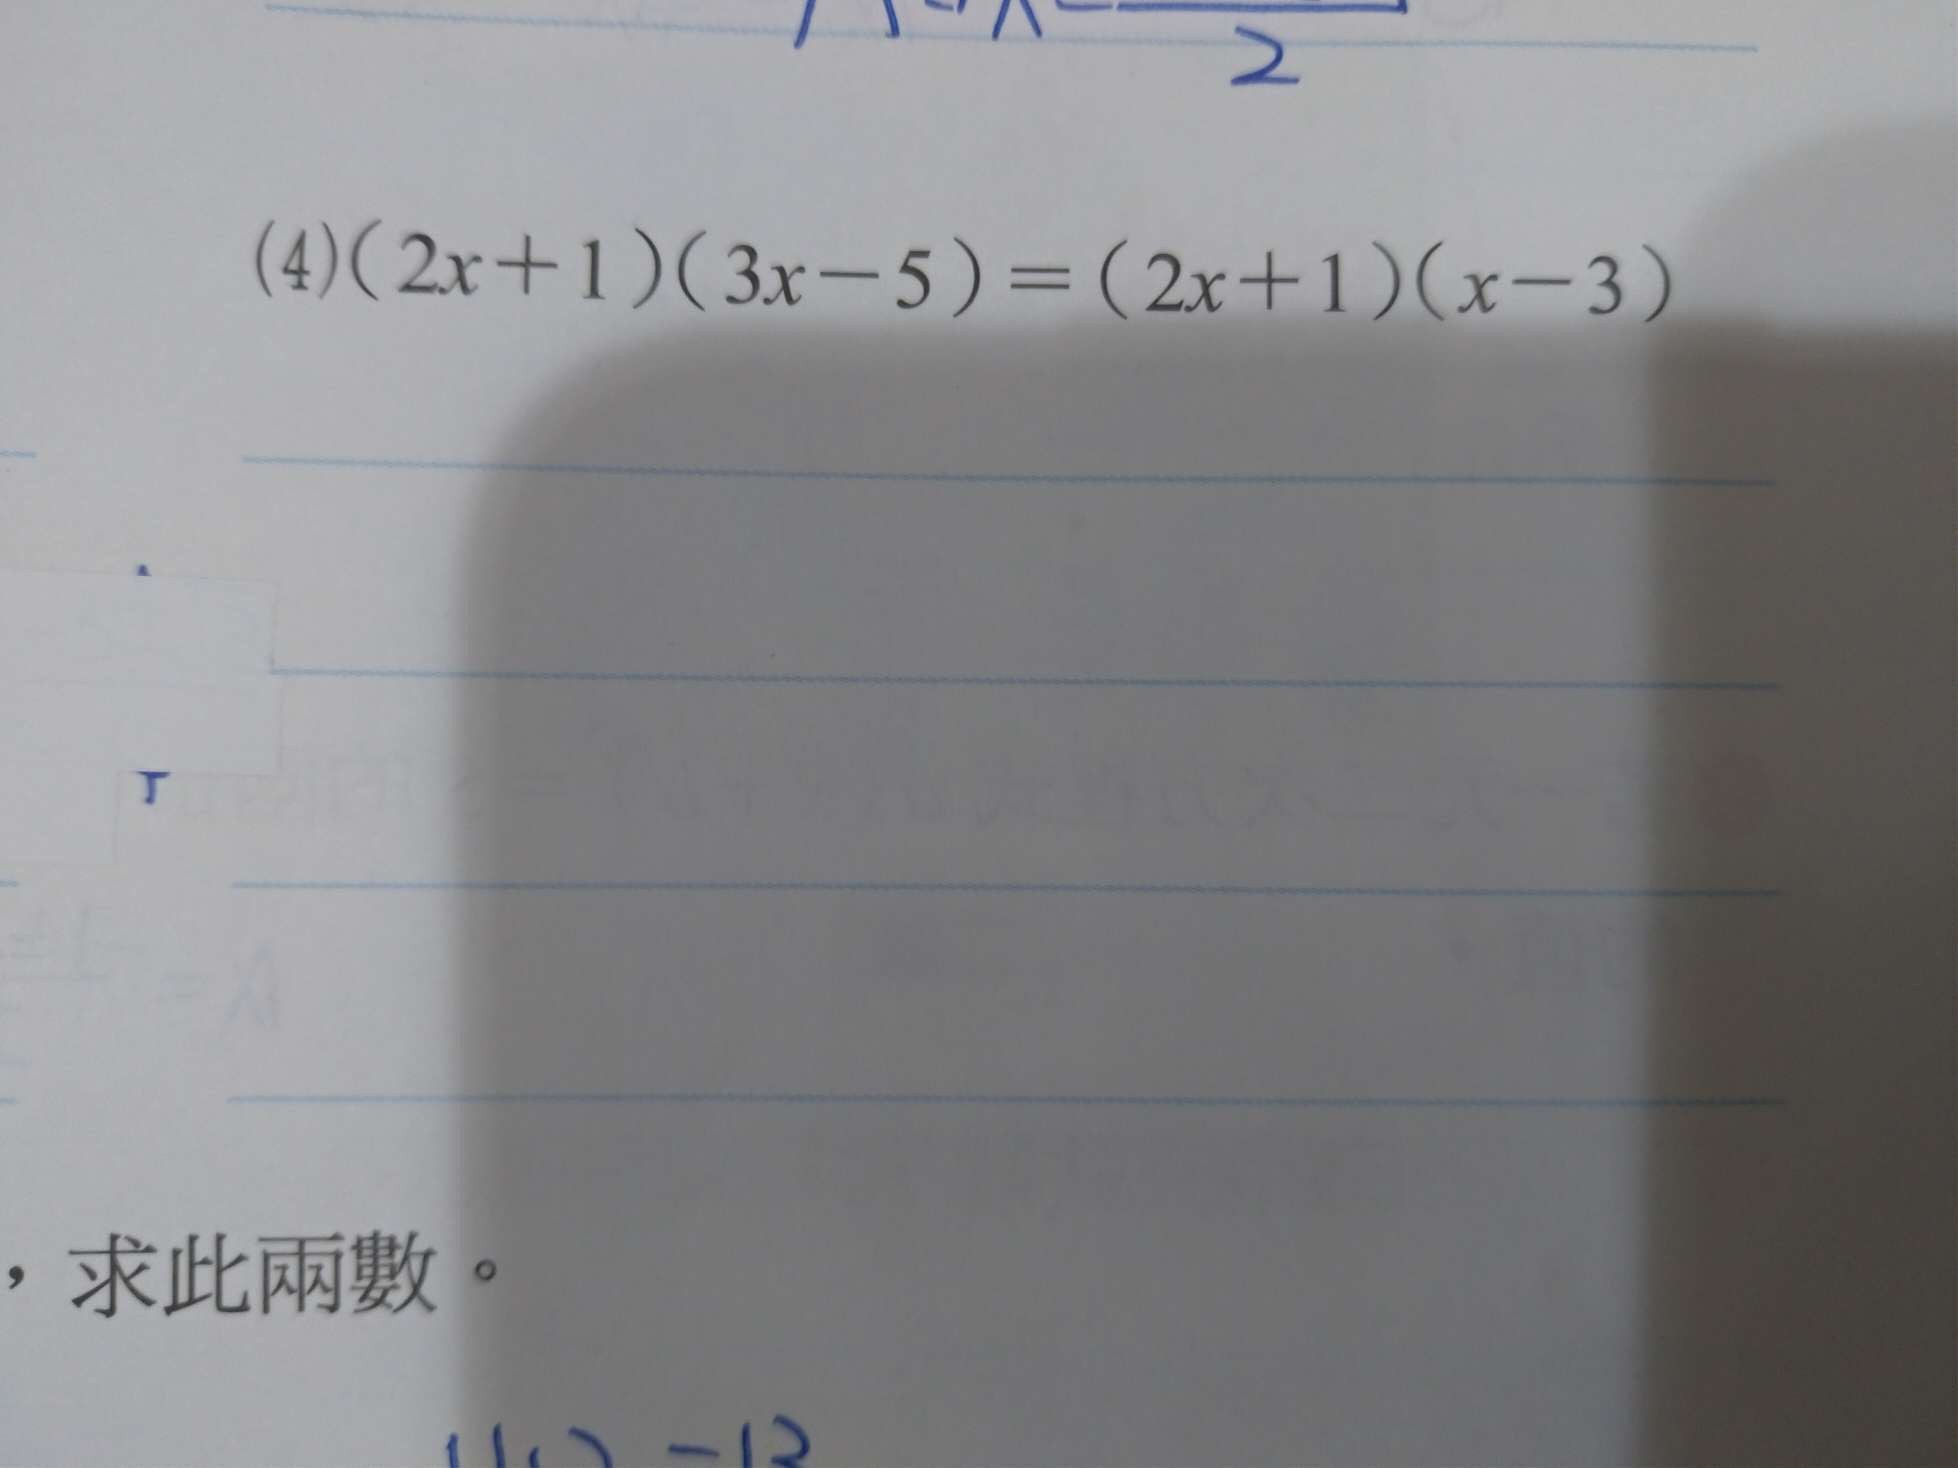 2
(4)(2x+1)(3x-5)=(2x+1)(x-3)
，求此兩數。
-13